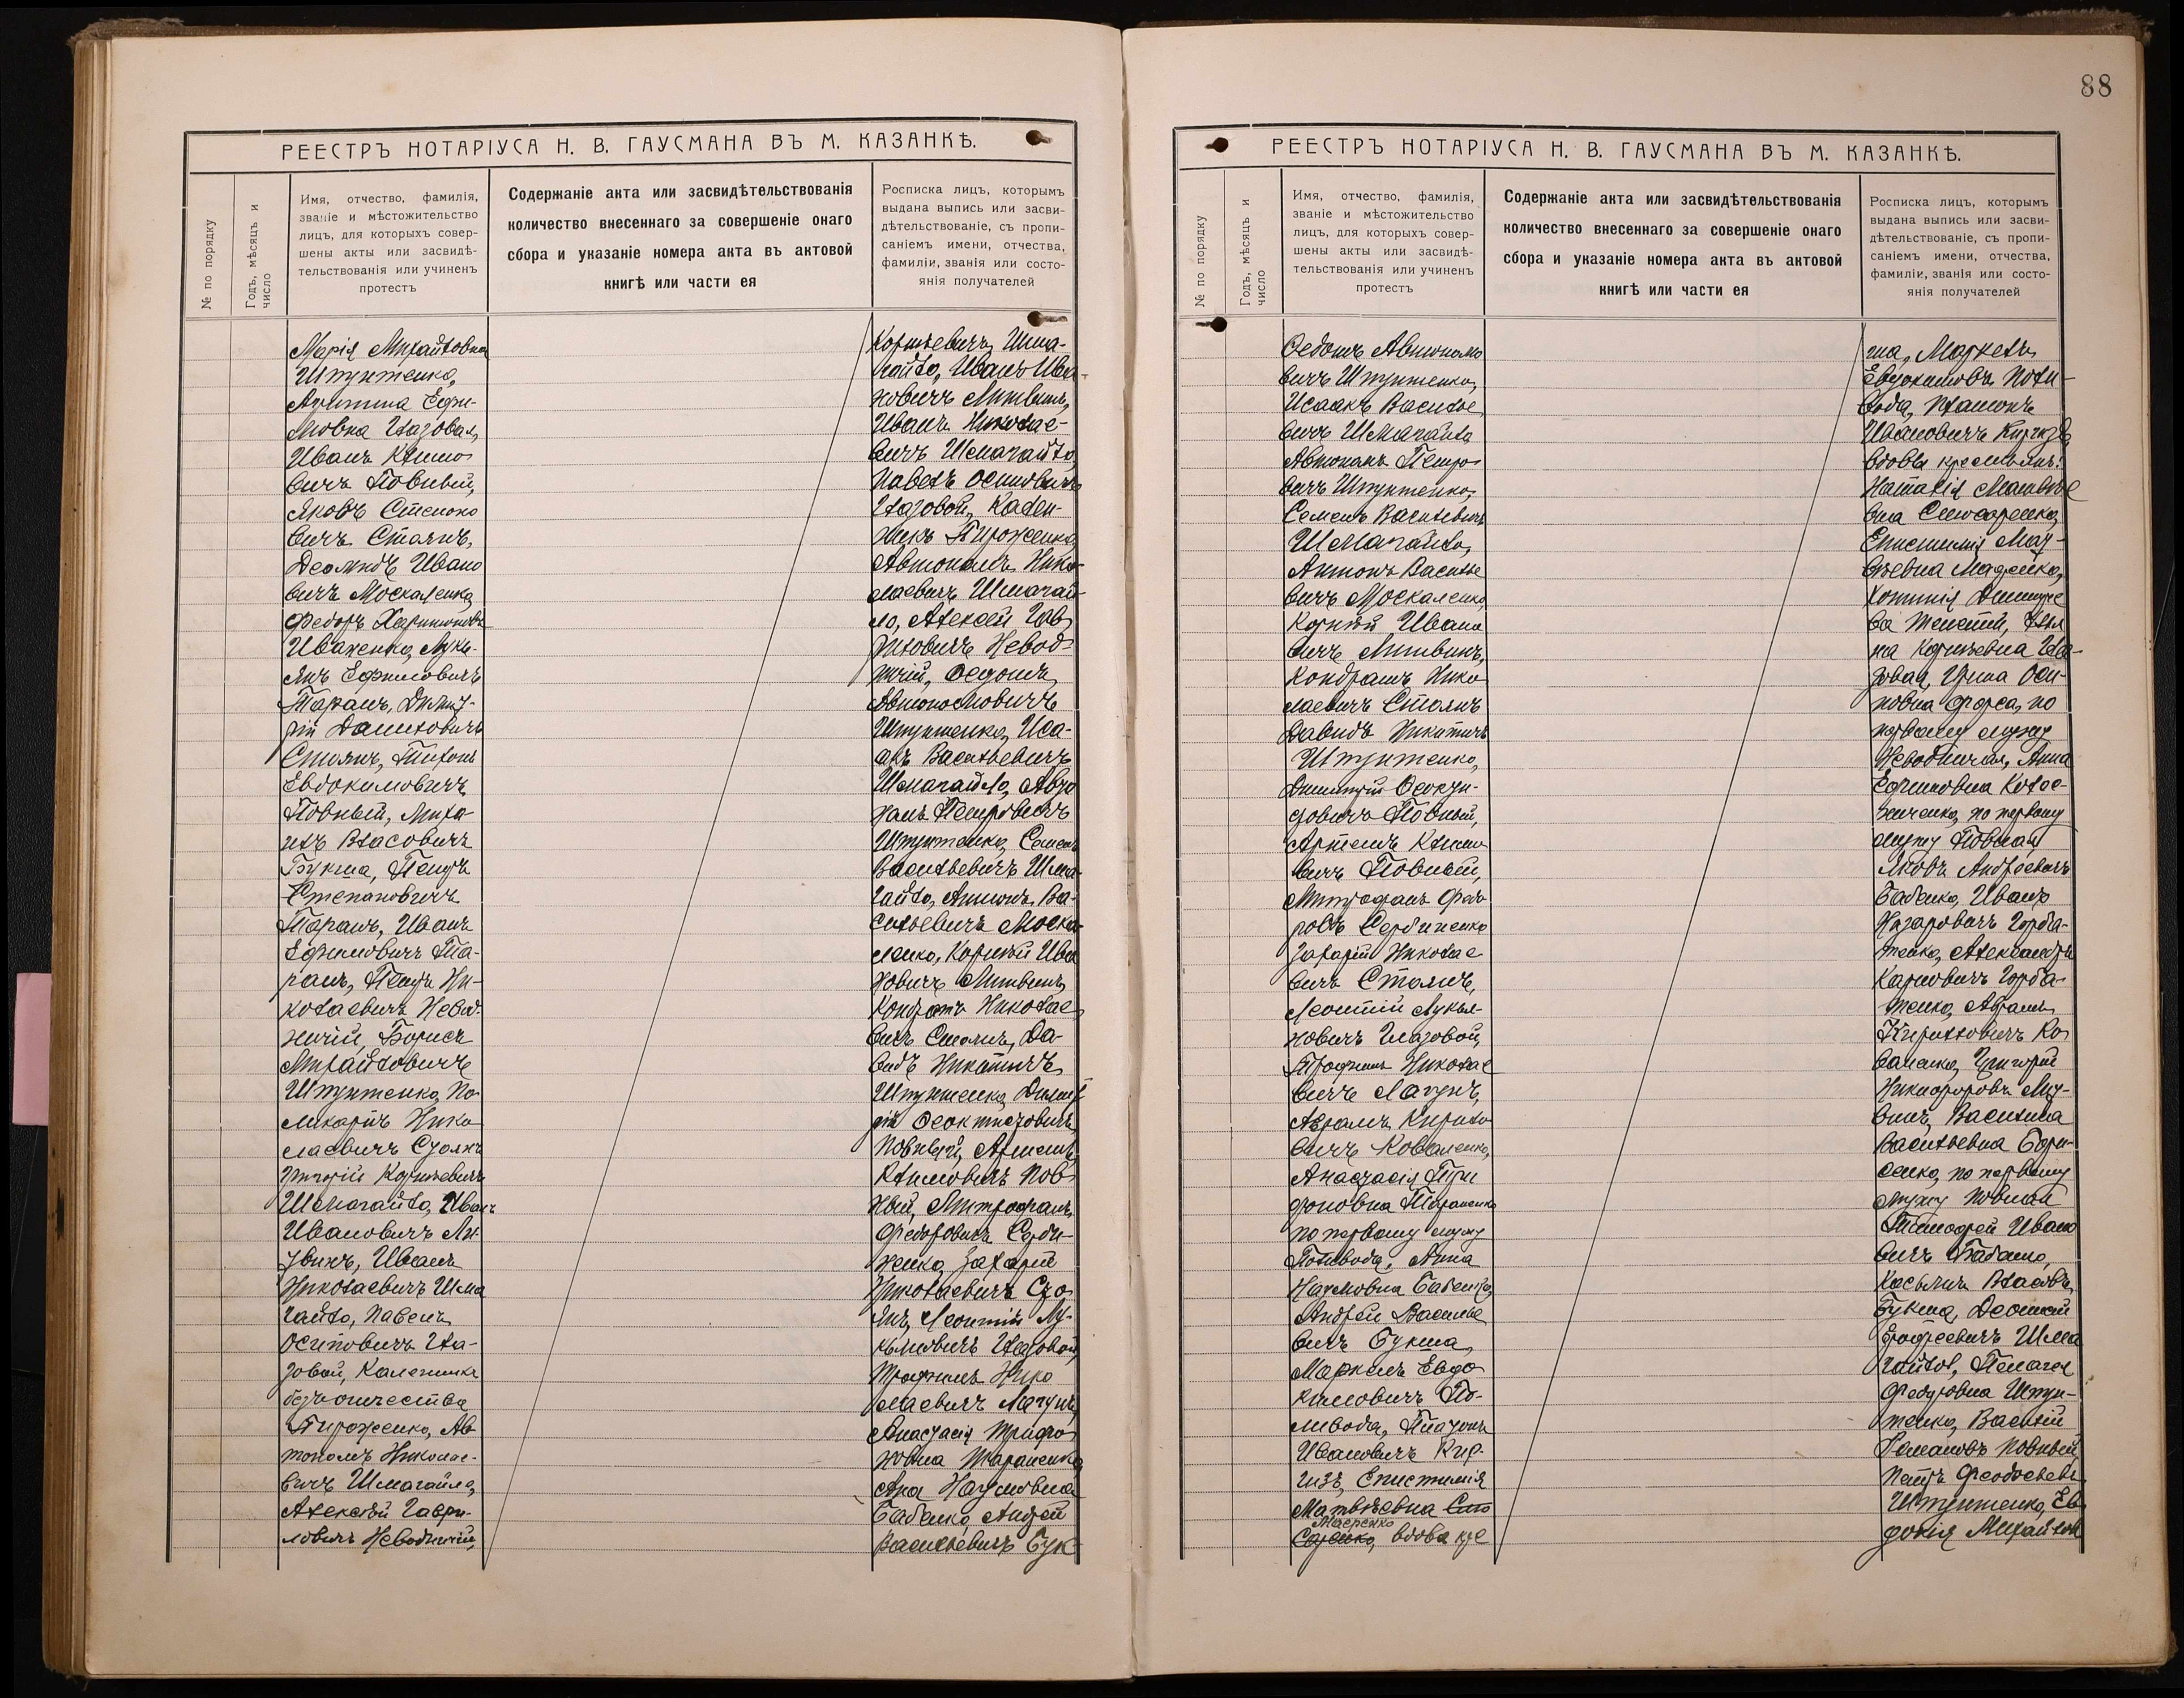 РЕЕСТРЪ НОТАРІУСА Н. В. ГАУСМАНА ВЪ М. КАЗАНКѢ.
№ по порядку
Годъ, мѣсяцъ и
число
Имя, отчество, фамилія,
званіе и мѣстожительство
лицъ, для которыхъ совер-
шены акты или засвидѣ-
тельствованія или учиненъ
протестъ
Содержаніе акта или засвидѣтельствованія
количество внесеннаго за совершеніе онаго
сбора и указаніе номера акта въ актовой
книгѣ или части ея
Росписка лицъ, которымъ
выдана выпись или засви-
дѣтельствованіе, съ пропи-
саніемъ имени, отчества,
фамиліи, званія или состо-
янія получателей
Марія Михайловна
Штунтенко,
Ефи-
мовна Глазовая,
Иванъ Климо
вичъ Повный,
Яковъ
вичъ Столнъ,
Ивано
вичъ Москаленко
Федоръ Харитоновъ
Иваненко, Лукь-
янъ Ефимовичъ
Таранъ, Димит-
рій Даниловичъ
Столнъ, Тихонъ
Евдокимовичъ
Повный, Миха-
илъ Власовичъ
Букша, Петръ
Степановичъ
Таранъ, Иванъ
Ефимовичъ Та-
ранъ, Петръ Ни-
колаевичъ Невод-
ничій, Борисъ
Михайловичъ
Штунтенко, По-
ликарпъ Нико
лаевичъ Столнъ
Григорій Корнѣевичъ
Шмагайло, Иванъ
Ивановичъ Ли-
твинъ, Иванъ
Николаевичъ Шма
гайло, Павелъ
Осиповичъ Гла-
зовой, Калениикъ
безъ отчества
Пироженко, Ав
тономъ Николае-
вичъ Шмагайло,
Алексѣй Гаври-
ловичъ Неводничій,
Корнѣевичъ Шма-
гайло, Иванъ Ива-
новичъ Литвинъ,
Иванъ Николае-
вичъ Шмагайло,
Павелъ Осиповичъ
Глазовой, Кален-
никъ Пироженко,
Автономъ Нико-
лаевичъ Шмагай-
ло, Алексѣй Гав-
риловичъ Невод-
ничій, Федотъ
Автономовичъ
Штунтенко, Иса-
акъ Васильевичъ
Шмагайло, Авто
номъ Петровичъ
Штунтенко, Семенъ
Васильевичъ Шма-
гайло, Антонъ Ва-
сильевичъ Моска-
ленко, Корнѣй Ива
новичъ Литвинъ,
Кондратъ Николае-
вичъ Столнъ, Да-
видъ Никитичъ
Штунтенко, Димит
рій Феоктистовичъ
Повный, Артемъ
Климовичъ Пов-
ный, Митрофанъ
Федоровичъ Серди-
ненко, Захарій
Николаевичъ Сто-
лнъ, Леонтій Лу-
кьяновичъ Глазовой,
Трофимъ Нико
лаевичъ Лагунъ,
Анастасія Трифо
новна Тараненко,
Анна Наумовна
Бабенко, Андрей
Васильевичъ Бук-
88
РЕЕСТРЪ НОТАРІУСА Н. В. ГАУСМАНА ВЪ М. КАЗАНКѢ.
№ по порядку
Годъ, мѣсяцъ и
число
Имя, отчество, фамилія,
званіе и мѣстожительство
лицъ, для которыхъ совер-
шены акты или засвидѣ-
тельствованія или учиненъ
протестъ
Содержаніе акта или засвидѣтельствованія
количество внесеннаго за совершеніе онаго
сбора и указаніе номера акта въ актовой
книгѣ или части ея
Росписка лицъ, которымъ
выдана выпись или засви-
дѣтельствованіе, съ пропи-
саніемъ имени, отчества,
фамиліи, званія или состо-
янія получателей
Федотъ Автономо
вичъ Штунтенко,
Исаакъ Василье
вичъ Шмагайло
Автономъ Петро-
вичъ Штунтенко,
Семенъ Васильевичъ
Шмагайло,
Антонъ Василье
вичъ Москаленко,
Корнѣй Ивано
вичъ Литвинъ,
Кондратъ Нико
лаевичъ Столнъ
Давидъ Никитичъ
Штунтенко,
Димитрій Феокти-
стовичъ Повный,
Артемъ Климо
вичъ Повный,
Митрофанъ Федо
ровъ Сердиненко
Захарій Николае
вичъ Столнъ,
Леонтій Лукья-
новичъ Глазовой,
Трофимъ Николае
вичъ Лагунъ,
Абрамъ Кирило
вичъ Коваленко,
Анастасія Три
фоновна Тараненко
по первому мужу
Поливода, Анна
Наумовна Бабенко,
Андрей Василье
вичъ Букша,
Маркелъ Евдо
кимовичъ По-
ливода, Платонъ
Ивановичъ Кир-
гизъ, Епистимія
Матвѣевна Слю
Мазренко
саренко, вдова кре
ша, Маркелъ
Евдокимовъ Поли-
вода, Платонъ
Ивановичъ Киргизъ,
вдовы крестьянъ:
Наталія Матвѣе
вна Слюсаренко,
Епистимія Мат-
вѣевна Мазренко,
ва
на Корнѣевна Гла-
зовая, Ирина Оси-
повна по
первому мужу
Неводничая, Анна
Ефимовна Колес-
ниченко, по первому
мужу Повная
Яковъ Андреевичъ
Бабенко, Иванъ
Назаровичъ Горба-
тенко, Александръ
Карповичъ Горба-
тенко, Абрамъ
Кирилловичъ Ко-
валенко, Григорій
Никифоровъ Лит-
винъ, Василина
Васильевна Бори-
сенко, по первому
мужу Повная
Тимофей Ивано
вичъ Бабенко,
Касьянъ Власовъ
Букша, Леонтій
Ерофеевичъ Шма
гайло, Пелагея
Федоровна Штун-
тенко, Василій
Романовъ Повный,
Петръ Феодосьевъ
Штунтенко, Ев-
докія Михайлов